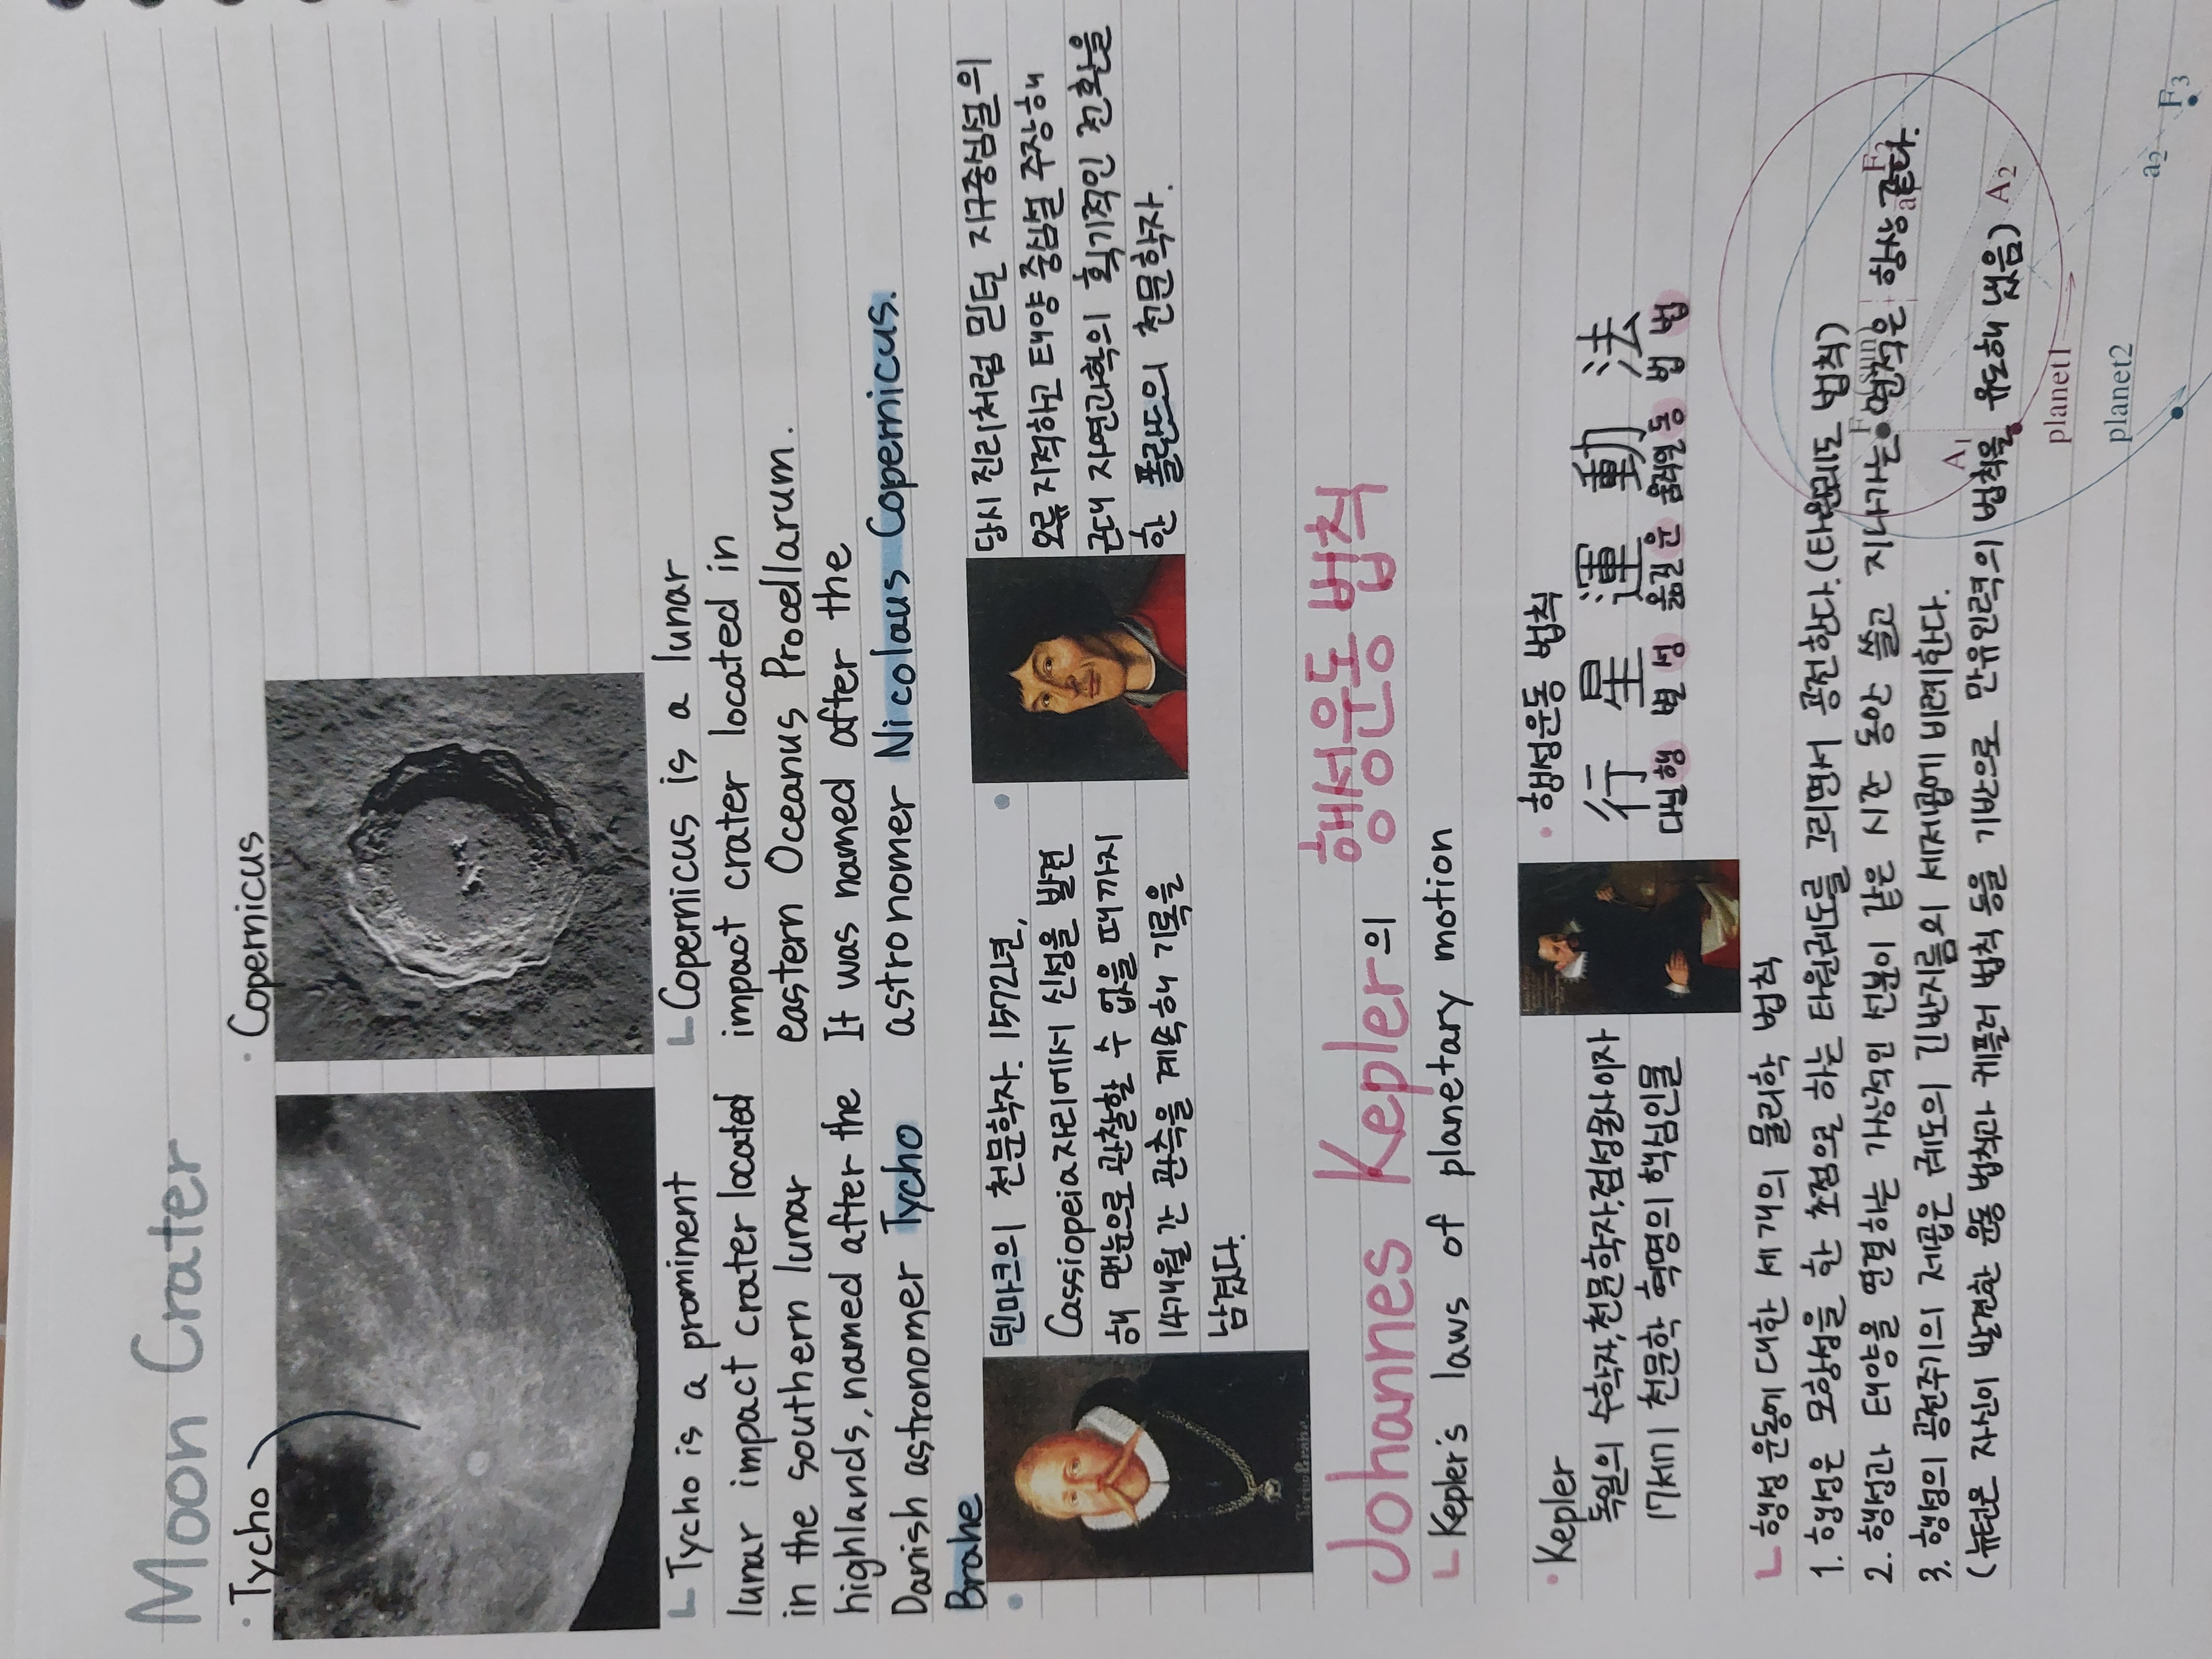 Moon Crater
· Tycho
· Copernicus
Tycho is a prominent
lunar impact crater located
in the southern lunar
highlands, named after the
Danish astronomer Tycho
Brahe
Copernicus is a lunar
impact crater located in
eastern Oceanus Procellarum.
It was named after the
astronomer Nicolaus Copernicus.
덴마크의 천문학자. 1572년,
Cassiopeia자리에서 신성을 발견
해 맨눈으로 관찰할 수 없을 때까지
14개월 간 관측을 계속해 기록을
남겼다.
당시 진리처럼 믿던 지구중심설의
오류 지적하고 태양 중심설 주장해
근대 자연과학의 획기적인 전환을
한 폴란드의 천문학자.
Johannes Kepler의 행성운동 법칙
Kepler's laws of planetary motion
· Kepler
독일의 수학자, 천문학자, 점성술사이자
17세기 천문학 혁명의 핵심인물
· 행성운동 법칙
行 星 運 動 法
다닐 행 별 성 옮길 운 움직일 동 법 법
행성 운동에 대한 세 개의 물리학 법칙
1. 행성은 모항성을 한 초점으로 하는 타원궤도를 그리면서 공전한다. (타원궤도 법칙)
2. 행성과 태양을 연결하는 가상적인 선분이 같은 시간 동안 쓸고 지나가는 면적은 항상 같다.
3. 행성의 공전주기의 제곱은 궤도의 긴반지름의 세제곱에 비례한다.
(뉴턴은 자신이 발견한 운동 법칙과 케플러 법칙 등을 기반으로 만유인력의 법칙을 유도해 냈음)
F₃
a₂
A₂
A₁
planet1
planet2